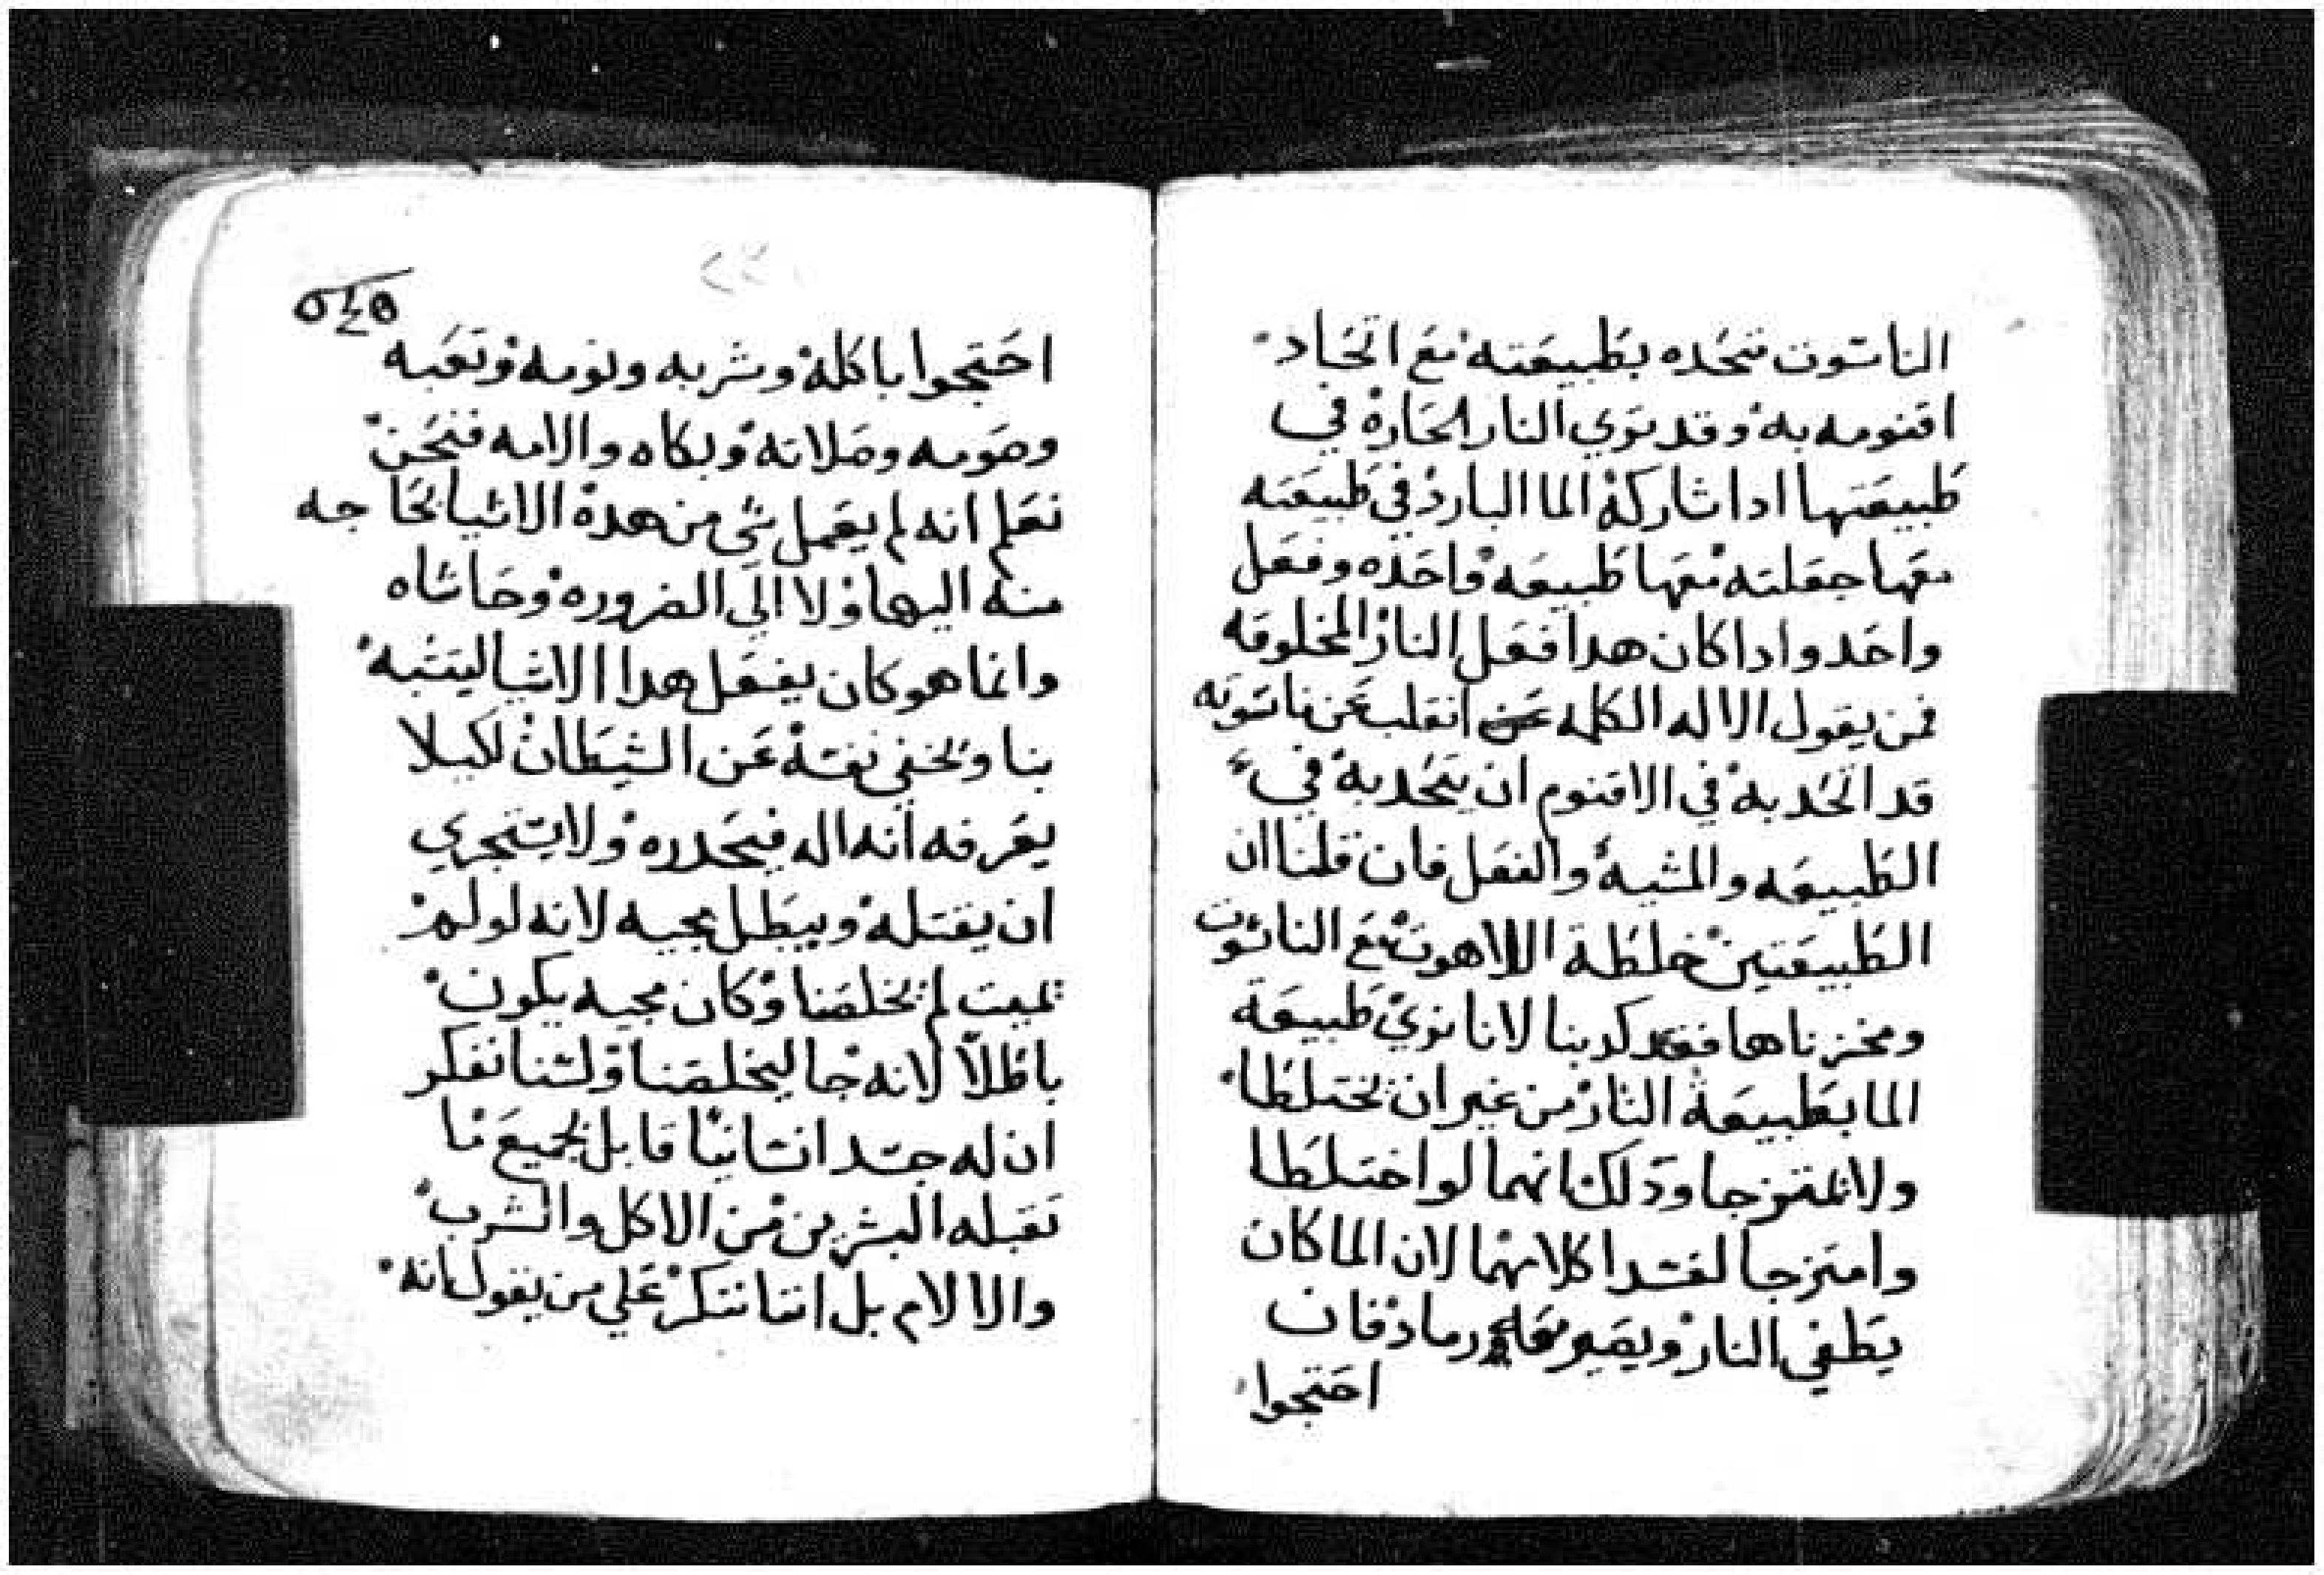 الناسوت متحده بطبيعته مع اتحاد
اقنومه به وقد نري النار الحاره في
طبيعتها ادا شاركة الما البارد في طبيعته
معها جعلته معها طبيعه واحده وفعل
واحد وادا كان هدا فعل النار المخلوقه
فمن يقول الاله الكلمه عن انقلب عن ناسوته
قد اتحد به في الاقنوم ان يتحد به في
الطبيعه والمشيه والفعل فان قلنا ان
الطبيعتين خلطة اللاهوت مع الناسوت
ومخزناها فقد كدبنا لانا نري طبيعة
الما بطبيعة النار من غير ان تختلطا
ولا تمتزجا ودلك انهما لو اختلطا
وامتزجا لفسدا كلاهما لان الما كان
يطفي النار ويصير رماد فان
احتجوا
احتجوا باكله وشربه ونومه وتعبه
وصومه وصلاته وبكاه والامه فنحن
نعلم انه لم يعمل شي من هده الاشيا لحاجه
منه اليها ولا الي الضروره وحاشاه
وانما هو كان يفعل هدا الاشيا ليتشبه
بنا ويخفي نفسه عن الشيطان لكيلا
يعرفه انه اله فيحدره ولا يتجري
ان يقتله ويبطل مجيه لانه لو لم
يميت لم يخلصنا وكان مجيه يكون
باطلا لانه جا ليخلصنا ولسنا نفكر
ان له جسدا انسانيا قابل لجميع ما
تقبله البشريين من الاكل والشرب
والالام بل اننا ننكر علي من يقول انه